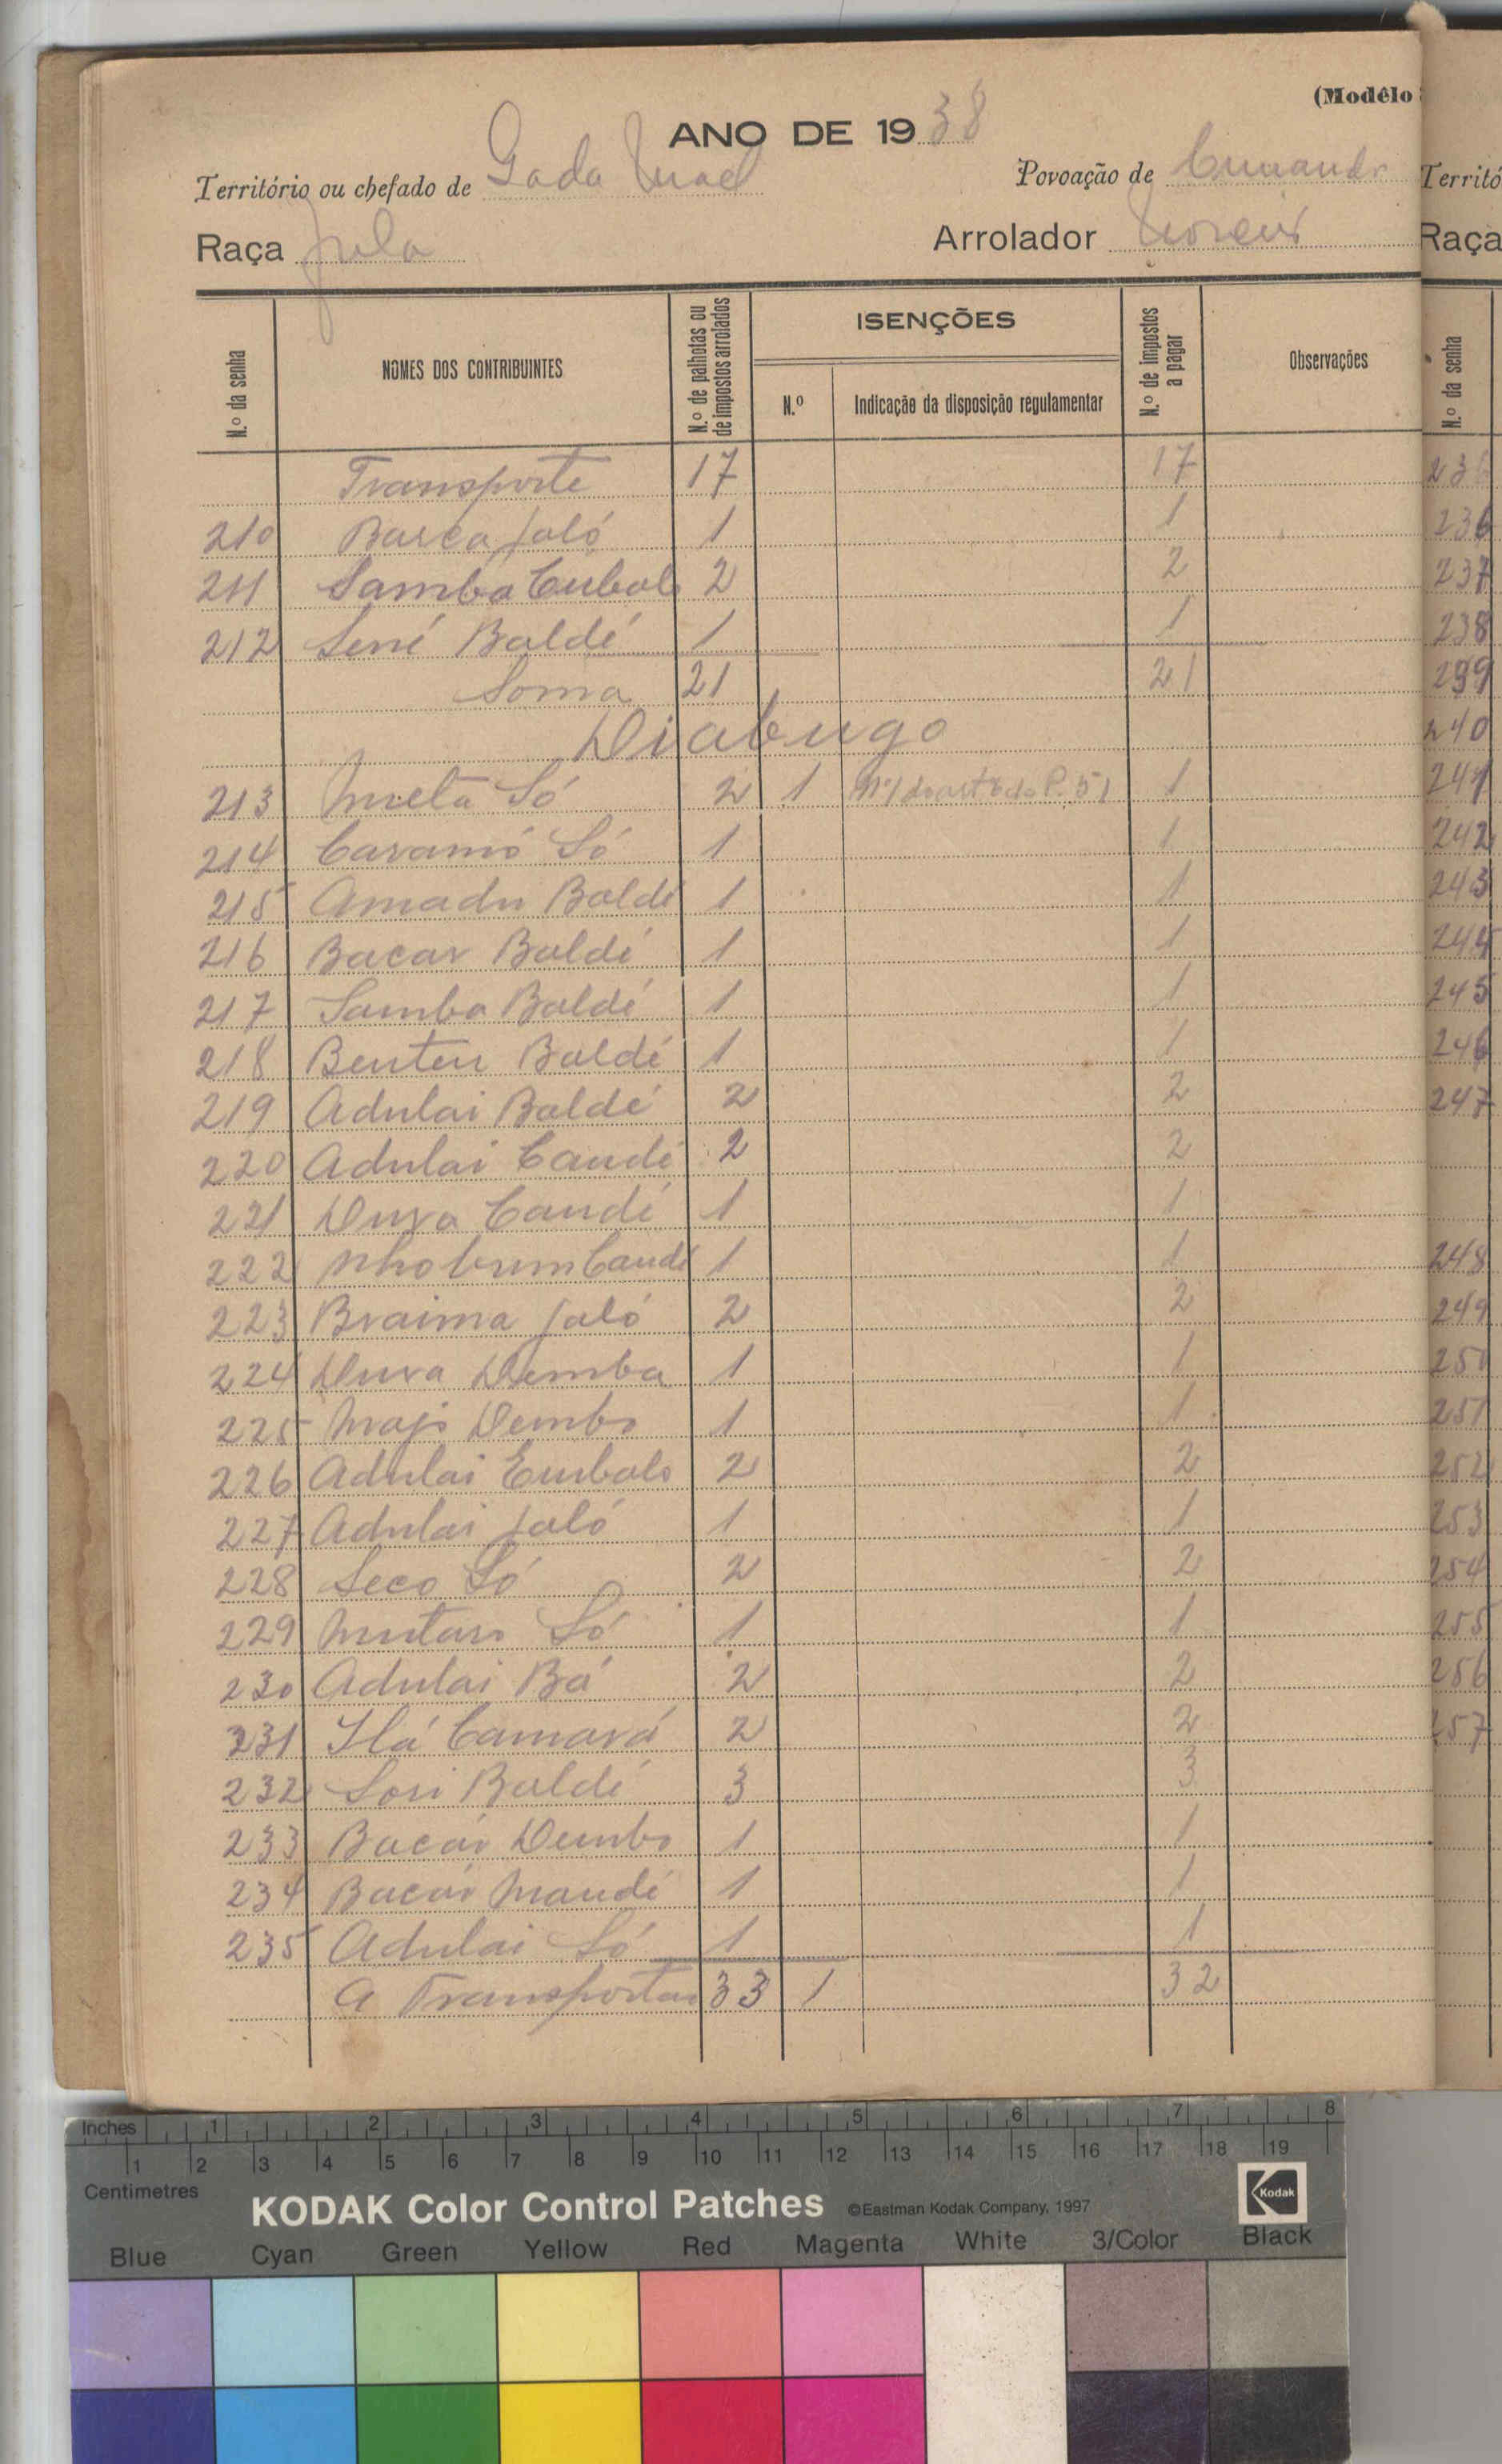 (Modêlo
ANO DE 1938
Território ou chefado de Gada Mael Povoação de
Raça Fula Arrolador
N.º da senha NOMES DOS CONTRIBUINTES N.º de palhotas ou de impostos arrolados ISENÇÕES N.º Indicação da disposição regulamentar N.º de impostos a pagar Observações
Transporte 17 17
210 Jaló 1 1
211 Samba 2 2
212 Sené Baldé 1 1
Soma 21 21
Diabugo
213 Só 2 1 1
214 Caramó Só 1 1
215 Amadu Baldé 1 1
216 Bacar Baldé 1 1
217 Samba Baldé 1 1
218 Benten Baldé 1 1
219 Adulai Baldé 2 2
220 Adulai Candé 2 2
221 Dura Candé 1 1
222 Candé 1 1
223 Braima Jaló 2 2
224 Dura Demba 1 1
225 Dembo 1 1
226 Adulai Embalo 2 2
227 Adulai Jaló 1 1
228 Seco Só 2 2
229 Mutaro Só 1 1
230 Adulai Bá 2 2
231 Ilá Camará 2 2
232 Sori Baldé 3 3
233 Bacár Dembo 1 1
234 Bacár Mandé 1 1
235 Adulai Só 1 1
A Transportar 33 1 32
Territó
Raça
N.º da senha
236
237
238
239
240
241
242
243
244
245
246
247
248
249
250
251
252
253
254
255
256
257
Inches 1 2 3 4 5 6 7 8
1 2 3 4 5 6 7 8 9 10 11 12 13 14 15 16 17 18 19
Centimetres
KODAK Color Control Patches ©Eastman Kodak Company, 1997 Kodak
Blue Cyan Green Yellow Red Magenta White 3/Color Black